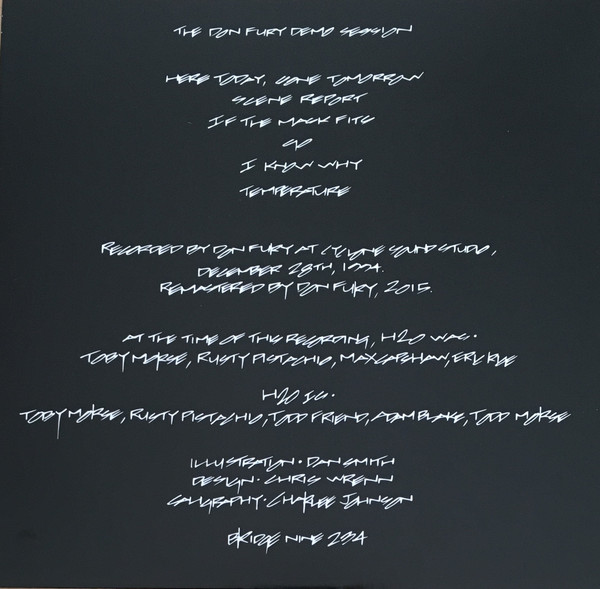 THE DON FURY DEMO SESSION
HERE TODAY, GONE TOMORROW
SCENE REPORT
IF THE MASK FITS
SO
I KNOW WHY
TEMPERATURE
RECORDED BY DON FURY AT CYCLONE SOUND STUDIO,
DECEMBER 28TH, 1994.
REMASTERED BY DON FURY, 2015.
AT THE TIME OF THIS RECORDING, H2O WAS·
TOBY MORSE, RUSTY PISTACHIO, MAX CAPSHAW, ERIC RICE
H2O IS·
TOBY MORSE, RUSTY PISTACHIO, TODD FRIEND, ADAM BLAKE, TODD MORSE
ILLUSTRATION· DAN SMITH
DESIGN· CHRIS WRENN
CALLIGRAPHY· CHARLEE JOHNSON
BRIDGE NINE 234